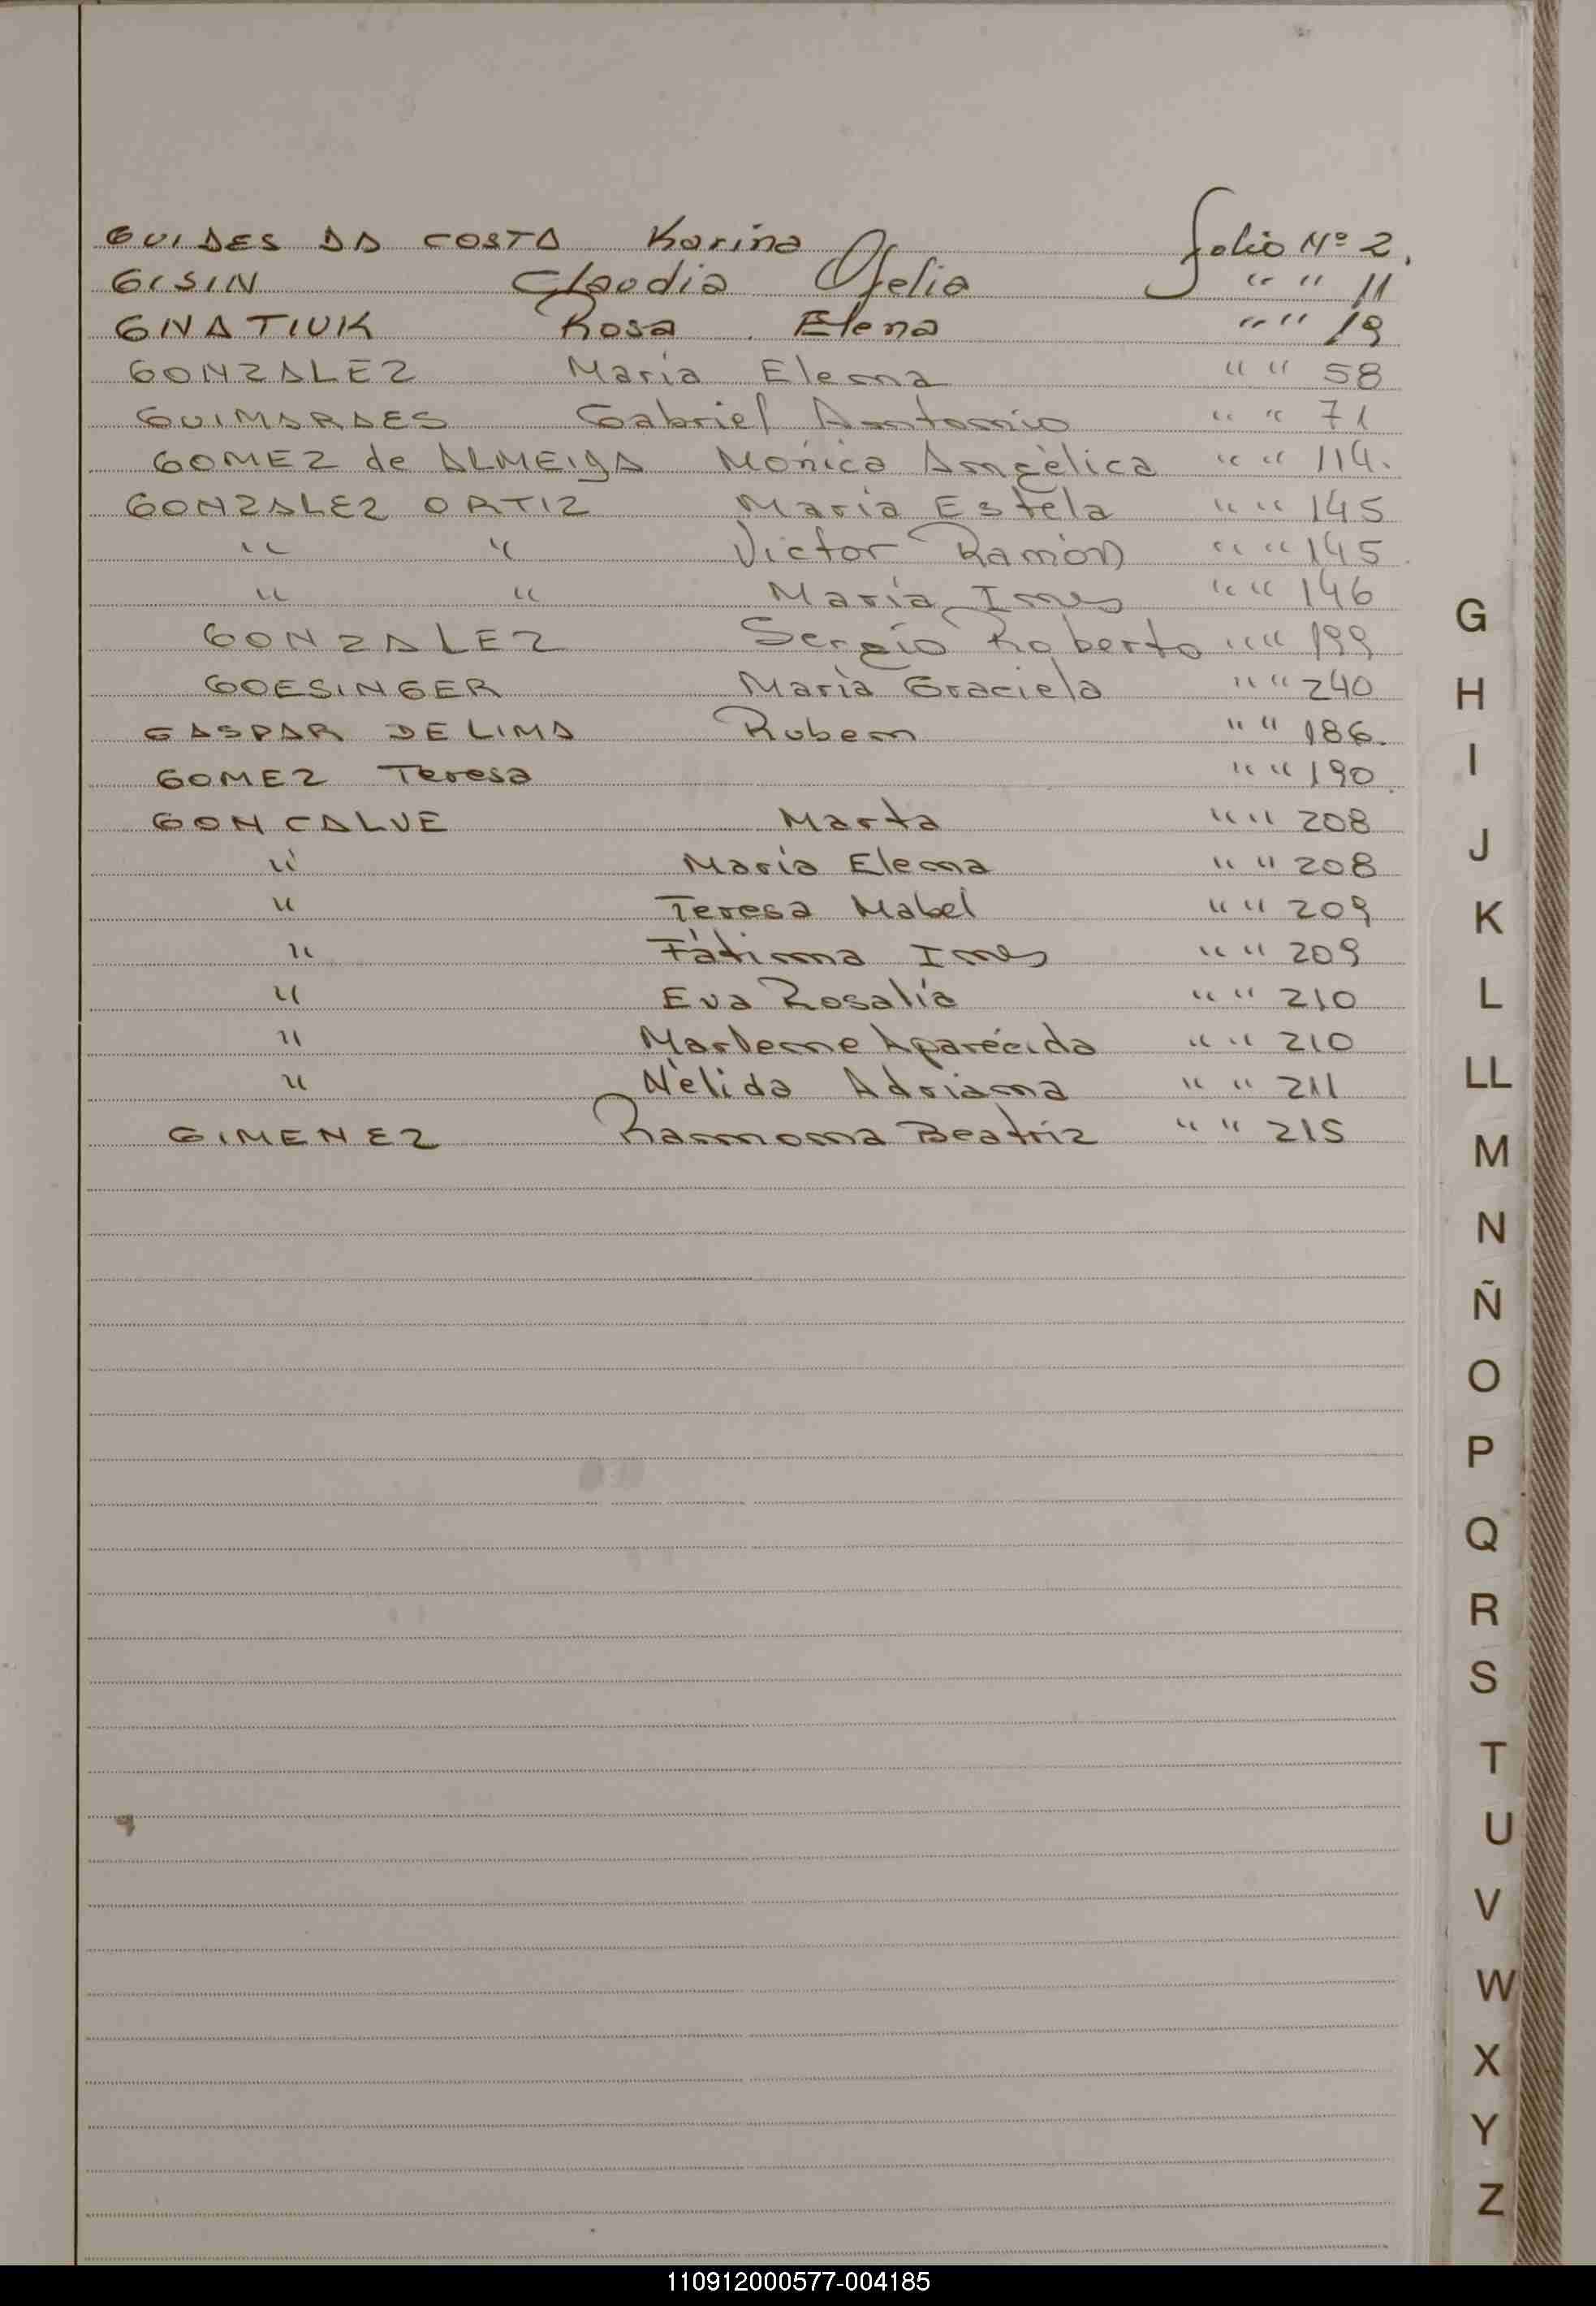 GUIDES DA COSTA Karina folio Nº 2.
GISIN Claudia Ofelia " " 11
GNATIUK Rosa Elena " " 19
GONZALEZ Maria Elena " " 58
GUIMARAES Gabriel Antonio " " 71
GOMEZ de ALMEIDA Mónica Angélica " " 114.
GONZALEZ ORTIZ Maria Estela " " 145
" " Victor Ramón " " 145
" " María Ines " " 146
GONZALEZ Sergio Roberto " " 199
GOESINGER María Graciela " " 240
GASPAR DE LIMA Ruben " " 186.
GOMEZ Teresa " " 190
GONCALVE Marta " " 208
" María Elena " " 208
" Teresa Mabel " " 209
" Fátima Ines " " 209
" Eva Rosalía " " 210
" Marlene Aparécida " " 210
" Nélida Adriana " " 211
GIMENEZ Ramona Beatriz " " 215
G
H
I
J
K
L
LL
M
N
Ñ
O
P
Q
R
S
T
U
V
W
X
Y
Z
110912000577-004185